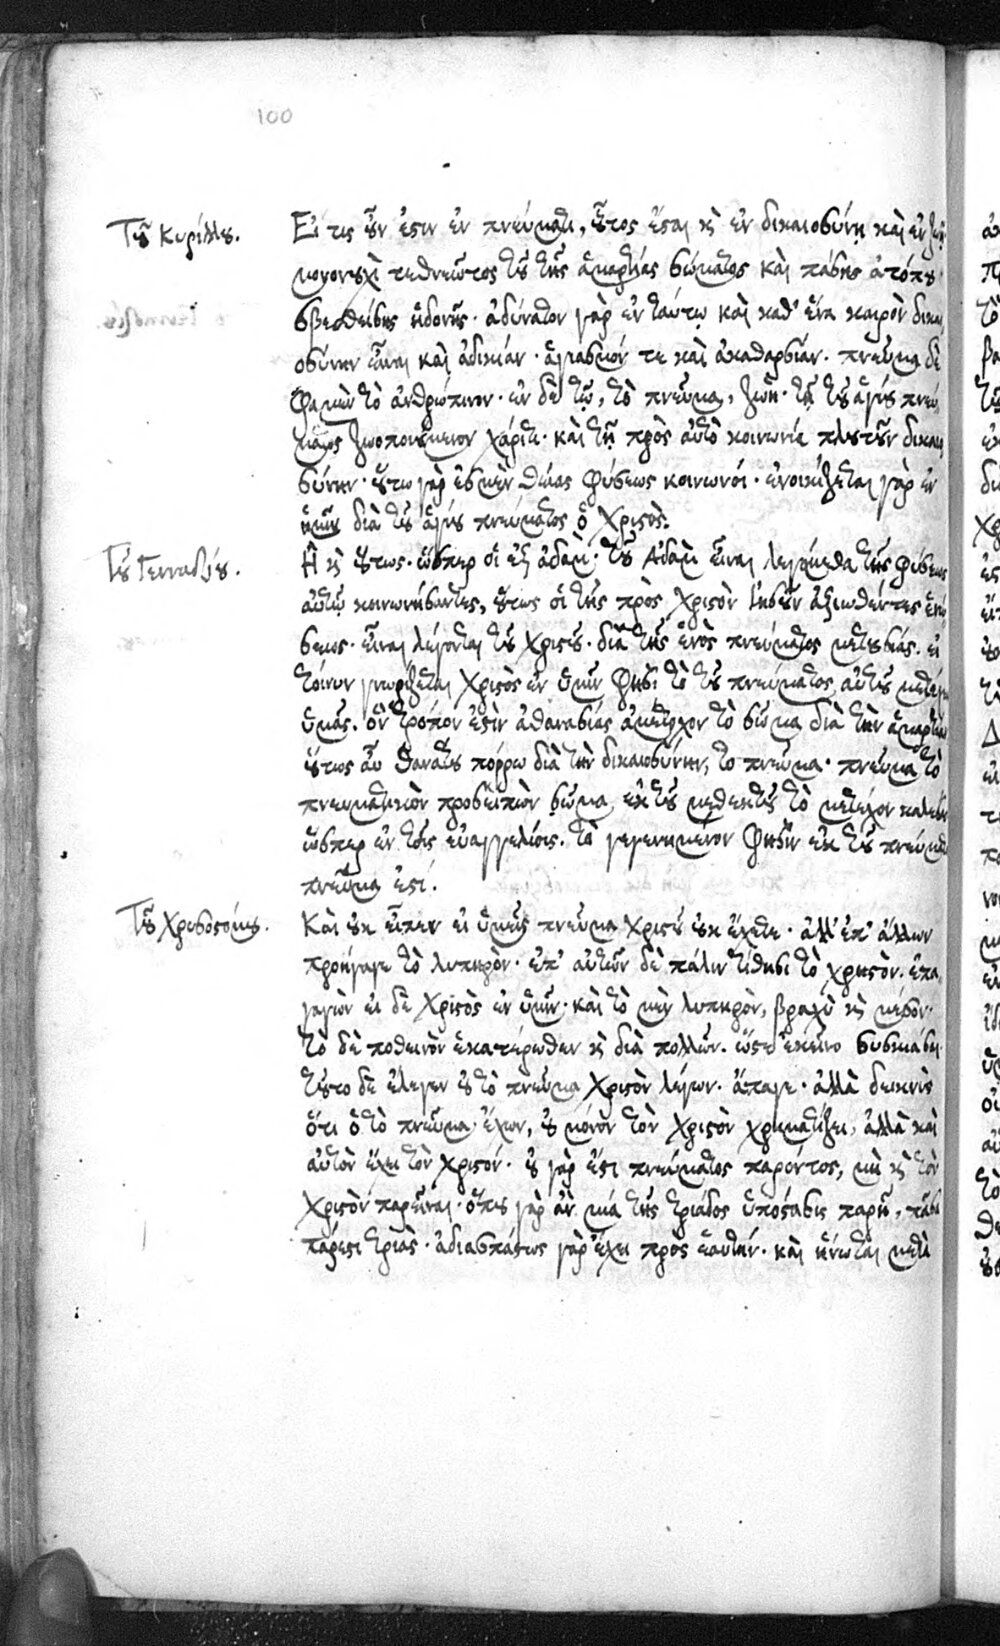 100
Τοῦ Κυρίλλου.
Εἴ τις οὖν ἐστιν ἐν πνεύματι, οὗτος ἔσται κ̀ ἐν δικαιοσύνῃ καὶ ἐν ζωῇ
μονονουχὶ τεθνεῶτος τοῦ τῆς ἁμαρτίας σώματος καὶ πάσης ἀτόπου
σβεσθείσης ἡδονῆς· ἀδύνατον γὰρ ἐν ταύτῳ καὶ καθ' ἕνα καιρὸν δικαι
οσύνην εἶναι καὶ ἀδικίαν· ἁγιασμόν τε καὶ ἀκαθαρσίαν. πνεῦμα δέ
φαμὲν τὸ ἀνθρώπινον· ἐν δὲ τῷ, τὸ πνεῦμα, ζωή· τῇ τοῦ ἁγίου πνεύ
ματος ζωοποιούμενον χάριτι· καὶ τῇ πρὸς αὐτὸ κοινωνίᾳ πλουτοῦν δικαιο
σύνην· οὕτω γὰρ ἐσμὲν θείας φύσεως κοινωνοί· ἐνοικίζεται γὰρ ἐν
ἡμῖν διὰ τοῦ ἁγίου πνεύματος ὁ Χριστός.
Τοῦ Γενναδίου.
Ἢ κ̀ οὕτως. ὥσπερ οἱ ἐξ ἀδὰμ· τοῦ Ἀδὰμ εἶναι λεγόμεθα τῆς φύσεως
αὐτῷ κοινωνήσαντες, οὕτως οἱ τῆς πρὸς Χριστὸν Ἰησοῦν ἀξιωθέντες ἑνώ
σεως· εἶναι λέγονται τοῦ Χριστοῦ· διὰ τῆς ἑνὸς πνεύματος μετουσίας. εἰ
τοίνυν γνωρίζεται Χριστὸς ἐν ὑμῖν φησὶ τὸ τοῦ πνεύματος αὐτοῦ
ὑμᾶς. ὃν τρόπον ἐστὶν ἀθανασίας ἀμέτοχον τὸ σῶμα διὰ τὴν ἁμαρτίαν
οὕτως αὖ θανάτου πόρρω διὰ τὴν δικαιοσύνην, τὸ πνεῦμα· πνεῦμα τὸ
πνευματικὸν προσειπὼν σῶμα, ἐκ τοῦ μεθεκτοῦ τὸ μετέχον καλέσας
ὥσπερ ἐν τοῖς εὐαγγελίοις. τὸ γεγεννημένον φησὶν ἐκ τοῦ πνεύματος
πνεῦμα ἐστί.
Τοῦ Χρυσοστόμου.
Καὶ οὐκ εἶπεν εἰ ὑμεῖς πνεῦμα Χριστοῦ οὐκ ἔχετε· ἀλλ' ἐπ' ἄλλων
προήγαγε τὸ λυπηρὸν· ἐπ' αὐτῶν δὲ πάλιν τίθησι τὸ χρηστὸν. ἐπα
γαγὼν εἰ δὲ Χριστὸς ἐν ὑμῖν· καὶ τὸ μὲν λυπηρὸν, βραχὺ κ̀ μέσον·
τὸ δὲ ποθεινὸν ἑκατέρωθεν κ̀ διὰ πολλῶν. ὥστε ἐκεῖνο συσκιάσαι.
τοῦτο δὲ ἔλεγεν οὐ τὸ πνεῦμα Χριστὸν λέγων. ἄπαγε· ἀλλὰ δεικνὺς
ὅτι ὁ τὸ πνεῦμα ἔχων, οὐ μόνον τὸν Χριστὸν χρηματίζει, ἀλλὰ καὶ
αὐτὸν ἔχει τὸν Χριστόν. οὐ γὰρ ἔστι πνεύματος παρόντος, μὴ κ̀ τὸν
Χριστὸν παρεῖναι· ὅπου γὰρ ἂν μιὰ τῆς τριάδος ὑπόστασις παρῇ, πᾶσα
πάρεστι τριὰς· ἀδιασπάστως γὰρ ἔχει πρὸς ἑαυτήν· καὶ ἥνωται μετὰ